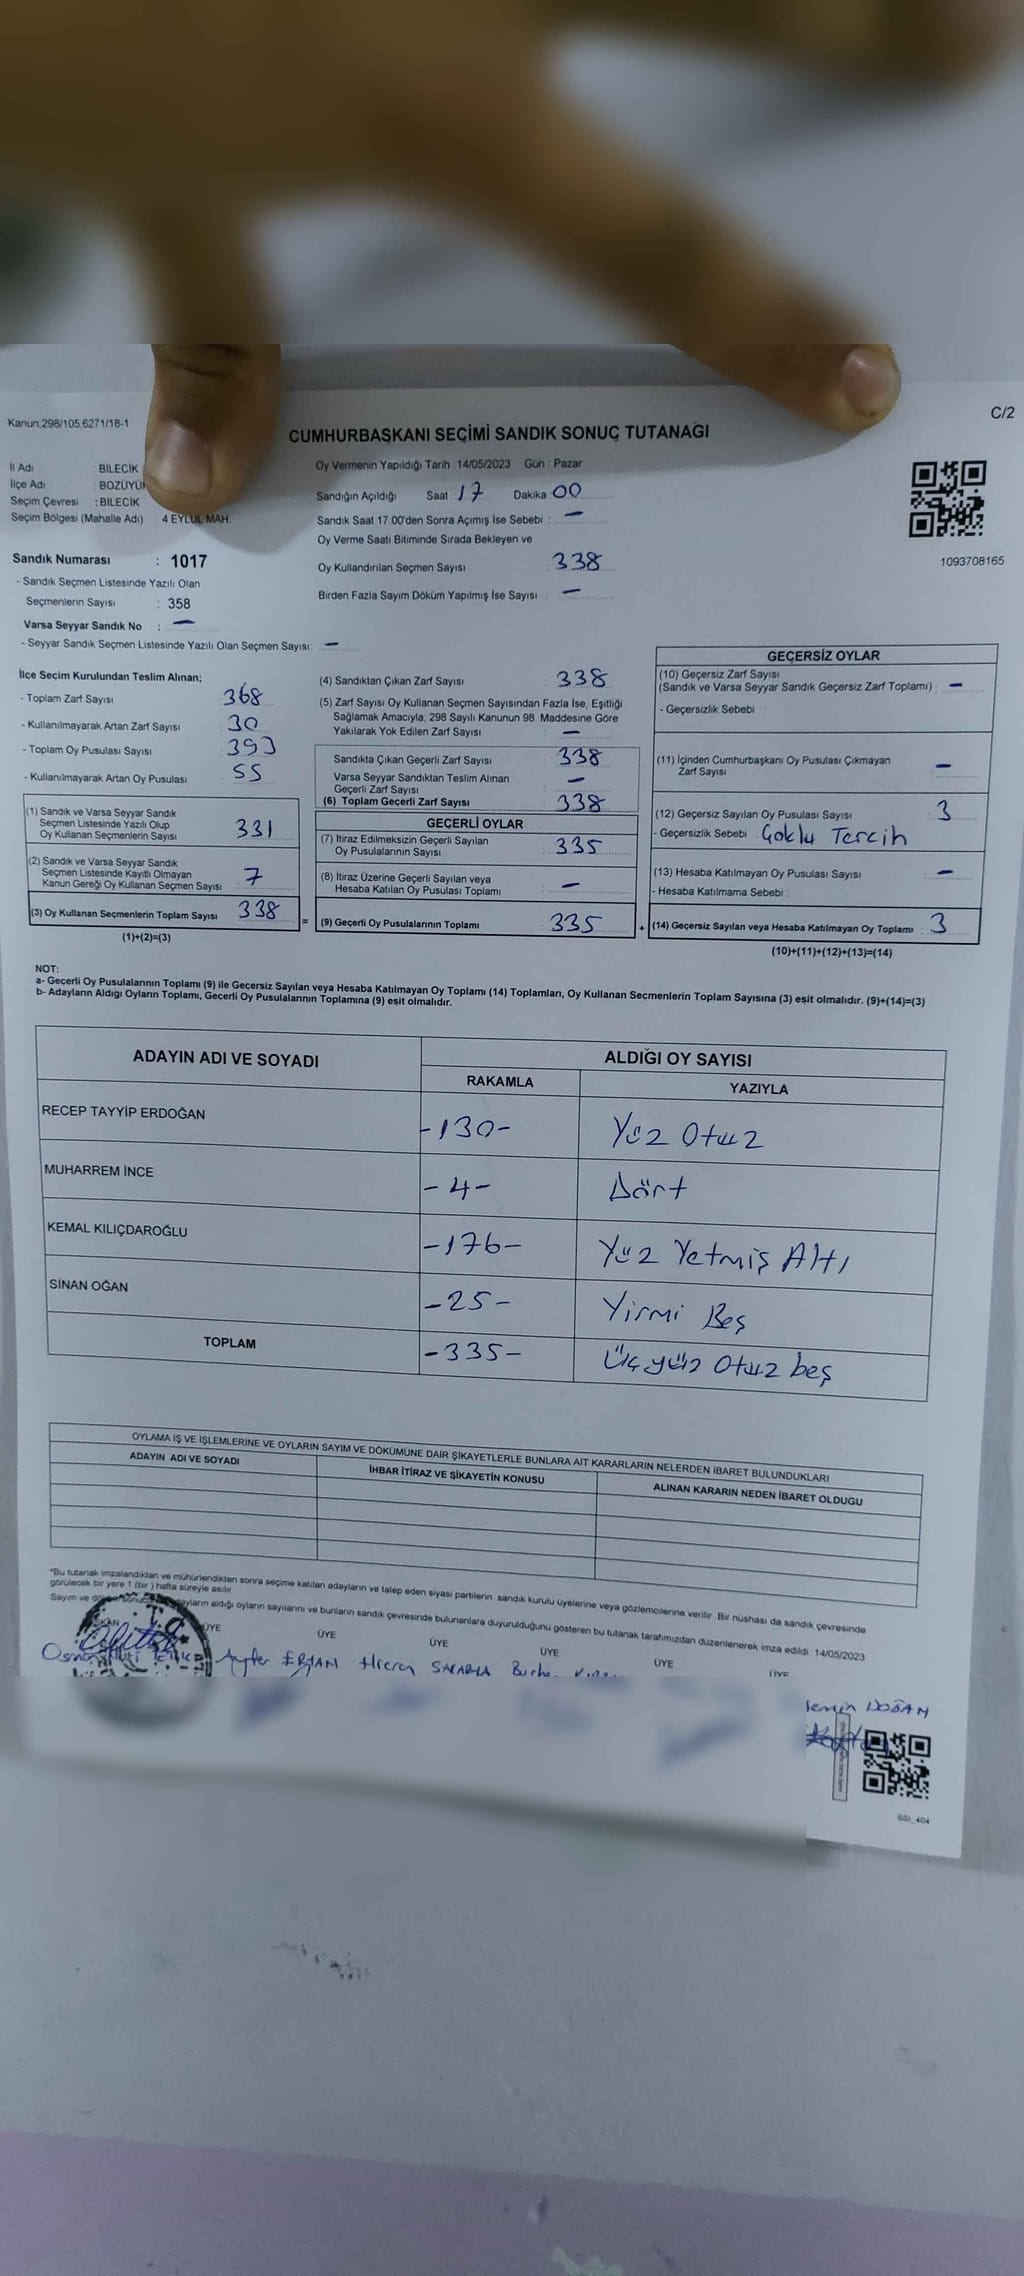 Kanun;298/105,6271/18-1
C/2
CUMHURBAŞKANI SEÇİMİ SANDIK SONUÇ TUTANAĞI
İl Adı : BİLECİK
İlçe Adı : BOZÜYÜ
Seçim Çevresi : BİLECİK
Seçim Bölgesi (Mahalle Adı) 4 EYLÜL MAH.
Oy Vermenin Yapıldığı Tarih : 14/05/2023 Gün : Pazar
Sandığın Açıldığı Saat 17 Dakika 00
Sandık Saat 17:00'den Sonra Açımış İse Sebebi : -
Oy Verme Saati Bitiminde Sırada Bekleyen ve
Oy Kullandırılan Seçmen Sayısı : 338
Birden Fazla Sayım Döküm Yapılmış İse Sayısı : -
1093708165
Sandık Numarası : 1017
- Sandık Seçmen Listesinde Yazılı Olan
Seçmenlerin Sayısı : 358
Varsa Seyyar Sandık No : -
- Seyyar Sandık Seçmen Listesinde Yazılı Olan Seçmen Sayısı: -
İlçe Seçim Kurulundan Teslim Alınan;
- Toplam Zarf Sayısı : 368
- Kullanılmayarak Artan Zarf Sayısı : 30
- Toplam Oy Pusulası Sayısı : 393
- Kullanılmayarak Artan Oy Pusulası : 55
(1) Sandık ve Varsa Seyyar Sandık
Seçmen Listesinde Yazılı Olup
Oy Kullanan Seçmenlerin Sayısı : 331
(2) Sandık ve Varsa Seyyar Sandık
Seçmen Listesinde Kayıtlı Olmayan
Kanun Gereği Oy Kullanan Seçmen Sayısı : 7
(3) Oy Kullanan Seçmenlerin Toplam Sayısı : 338
(1)+(2)=(3)
=
(4) Sandıktan Çıkan Zarf Sayısı : 338
(5) Zarf Sayısı Oy Kullanan Seçmen Sayısından Fazla İse, Eşitliği
Sağlamak Amacıyla; 298 Sayılı Kanunun 98. Maddesine Göre
Yakılarak Yok Edilen Zarf Sayısı : -
Sandıkta Çıkan Geçerli Zarf Sayısı : 338
Varsa Seyyar Sandıktan Teslim Alınan
Geçerli Zarf Sayısı : -
(6) Toplam Geçerli Zarf Sayısı : 338
GEÇERLİ OYLAR
(7) İtiraz Edilmeksizin Geçerli Sayılan
Oy Pusulalarının Sayısı : 335
(8) İtiraz Üzerine Geçerli Sayılan veya
Hesaba Katılan Oy Pusulası Toplamı : -
(9) Geçerli Oy Pusulalarının Toplamı : 335
+
GEÇERSİZ OYLAR
(10) Geçersiz Zarf Sayısı
(Sandık ve Varsa Seyyar Sandık Geçersiz Zarf Toplamı) : -
- Geçersizlik Sebebi :
(11) İçinden Cumhurbaşkanı Oy Pusulası Çıkmayan
Zarf Sayısı : -
(12) Geçersiz Sayılan Oy Pusulası Sayısı : 3
- Geçersizlik Sebebi : Çoklu Tercih
(13) Hesaba Katılmayan Oy Pusulası Sayısı : -
- Hesaba Katılmama Sebebi :
(14) Geçersiz Sayılan veya Hesaba Katılmayan Oy Toplamı : 3
(10)+(11)+(12)+(13)=(14)
NOT:
a- Geçerli Oy Pusulalarının Toplamı (9) ile Geçersiz Sayılan veya Hesaba Katılmayan Oy Toplamı (14) Toplamları, Oy Kullanan Seçmenlerin Toplam Sayısına (3) eşit olmalıdır. (9)+(14)=(3)
b- Adayların Aldığı Oyların Toplamı, Geçerli Oy Pusulalarının Toplamına (9) eşit olmalıdır.
ADAYIN ADI VE SOYADI
ALDIĞI OY SAYISI
RAKAMLA YAZIYLA
RECEP TAYYİP ERDOĞAN -130- Yüz Otuz
MUHARREM İNCE -4- Dört
KEMAL KILIÇDAROĞLU -176- Yüz Yetmiş Altı
SİNAN OĞAN -25- Yirmi Beş
TOPLAM -335- Üçyüz Otuz beş
OYLAMA İŞ VE İŞLEMLERİNE VE OYLARIN SAYIM VE DÖKÜMÜNE DAİR ŞİKAYETLERLE BUNLARA AİT KARARLARIN NELERDEN İBARET BULUNDUKLARI
ADAYIN ADI VE SOYADI İHBAR İTİRAZ VE ŞİKAYETİN KONUSU ALINAN KARARIN NEDEN İBARET OLDUĞU
*Bu tutanak imzalandıktan ve mühürlendikten sonra seçime katılan adayların ve talep eden siyasi partilerin sandık kurulu üyelerine veya gözlemcilerine verilir. Bir nüshası da sandık çevresinde
görülecek bir yere 1 (bir) hafta süreyle asılır.
Sayım ve aldığı oyların sayılarını ve bunların sandık çevresinde bulunanlara duyurulduğunu gösteren bu tutanak tarafımızdan düzenlenerek imza edildi. 14/05/2023
ÜYE ÜYE ÜYE ÜYE ÜYE
T.C.
DOĞAN
SSI_404